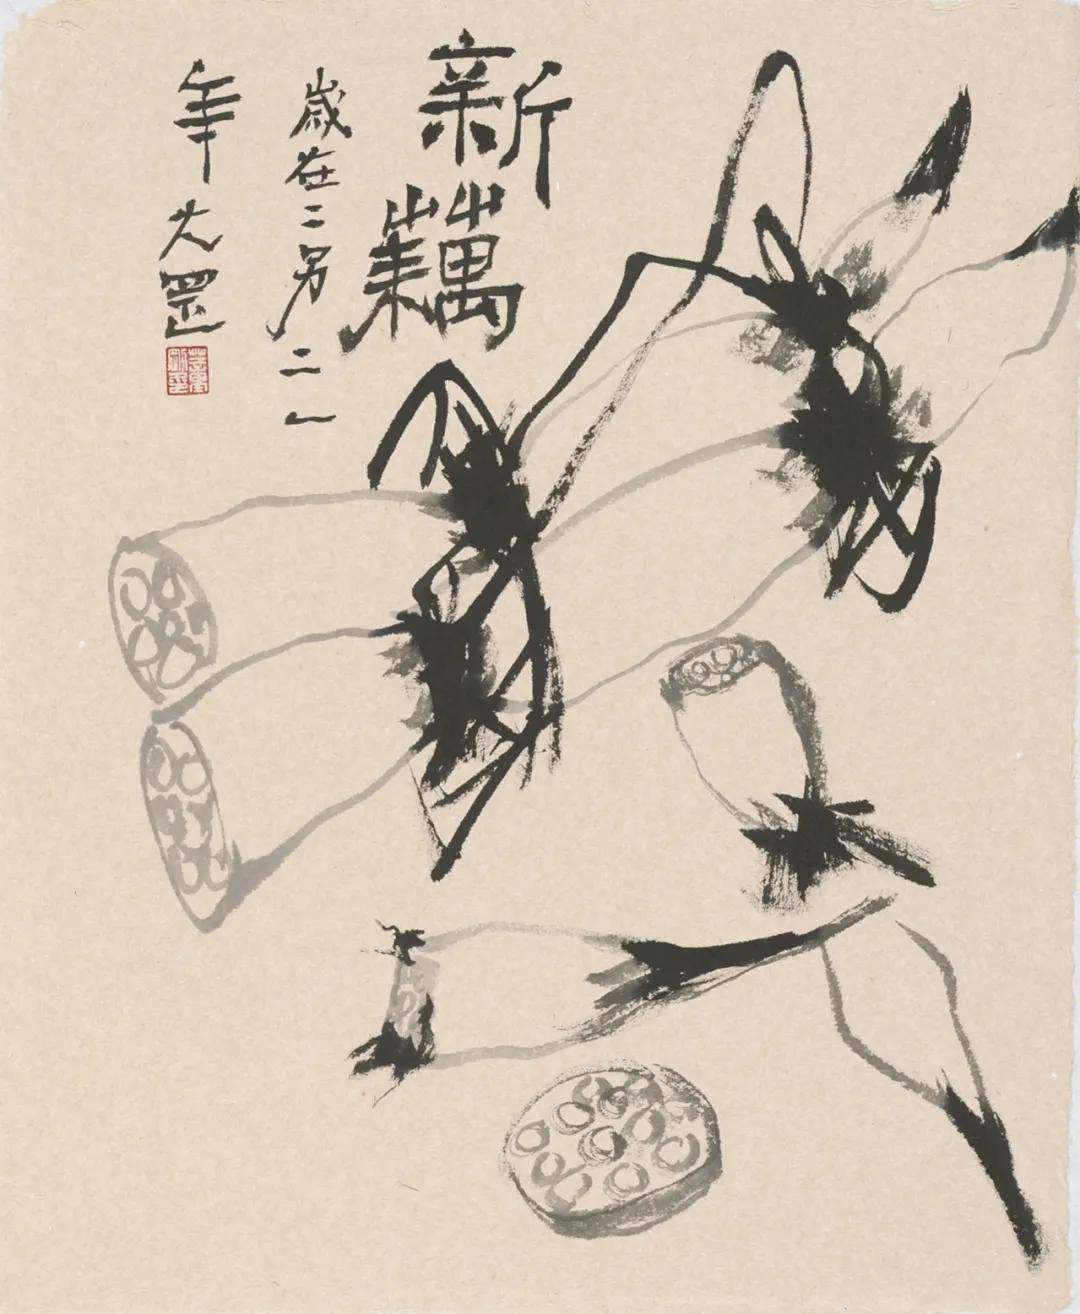 新藕
歲在二另二一
年大罡